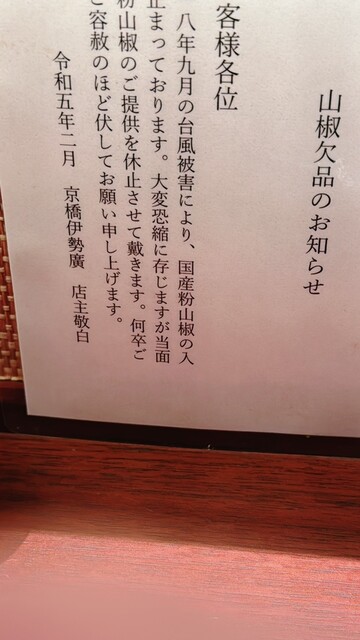 山椒欠品のお知らせ
客様各位
八年九月の台風被害により、国産粉山椒の入
止まっております。大変恐縮に存じますが当面
粉山椒のご提供を休止させて戴きます。何卒ご
ご容赦のほど伏してお願い申し上げます。
令和五年二月 京橋伊勢廣 店主敬白